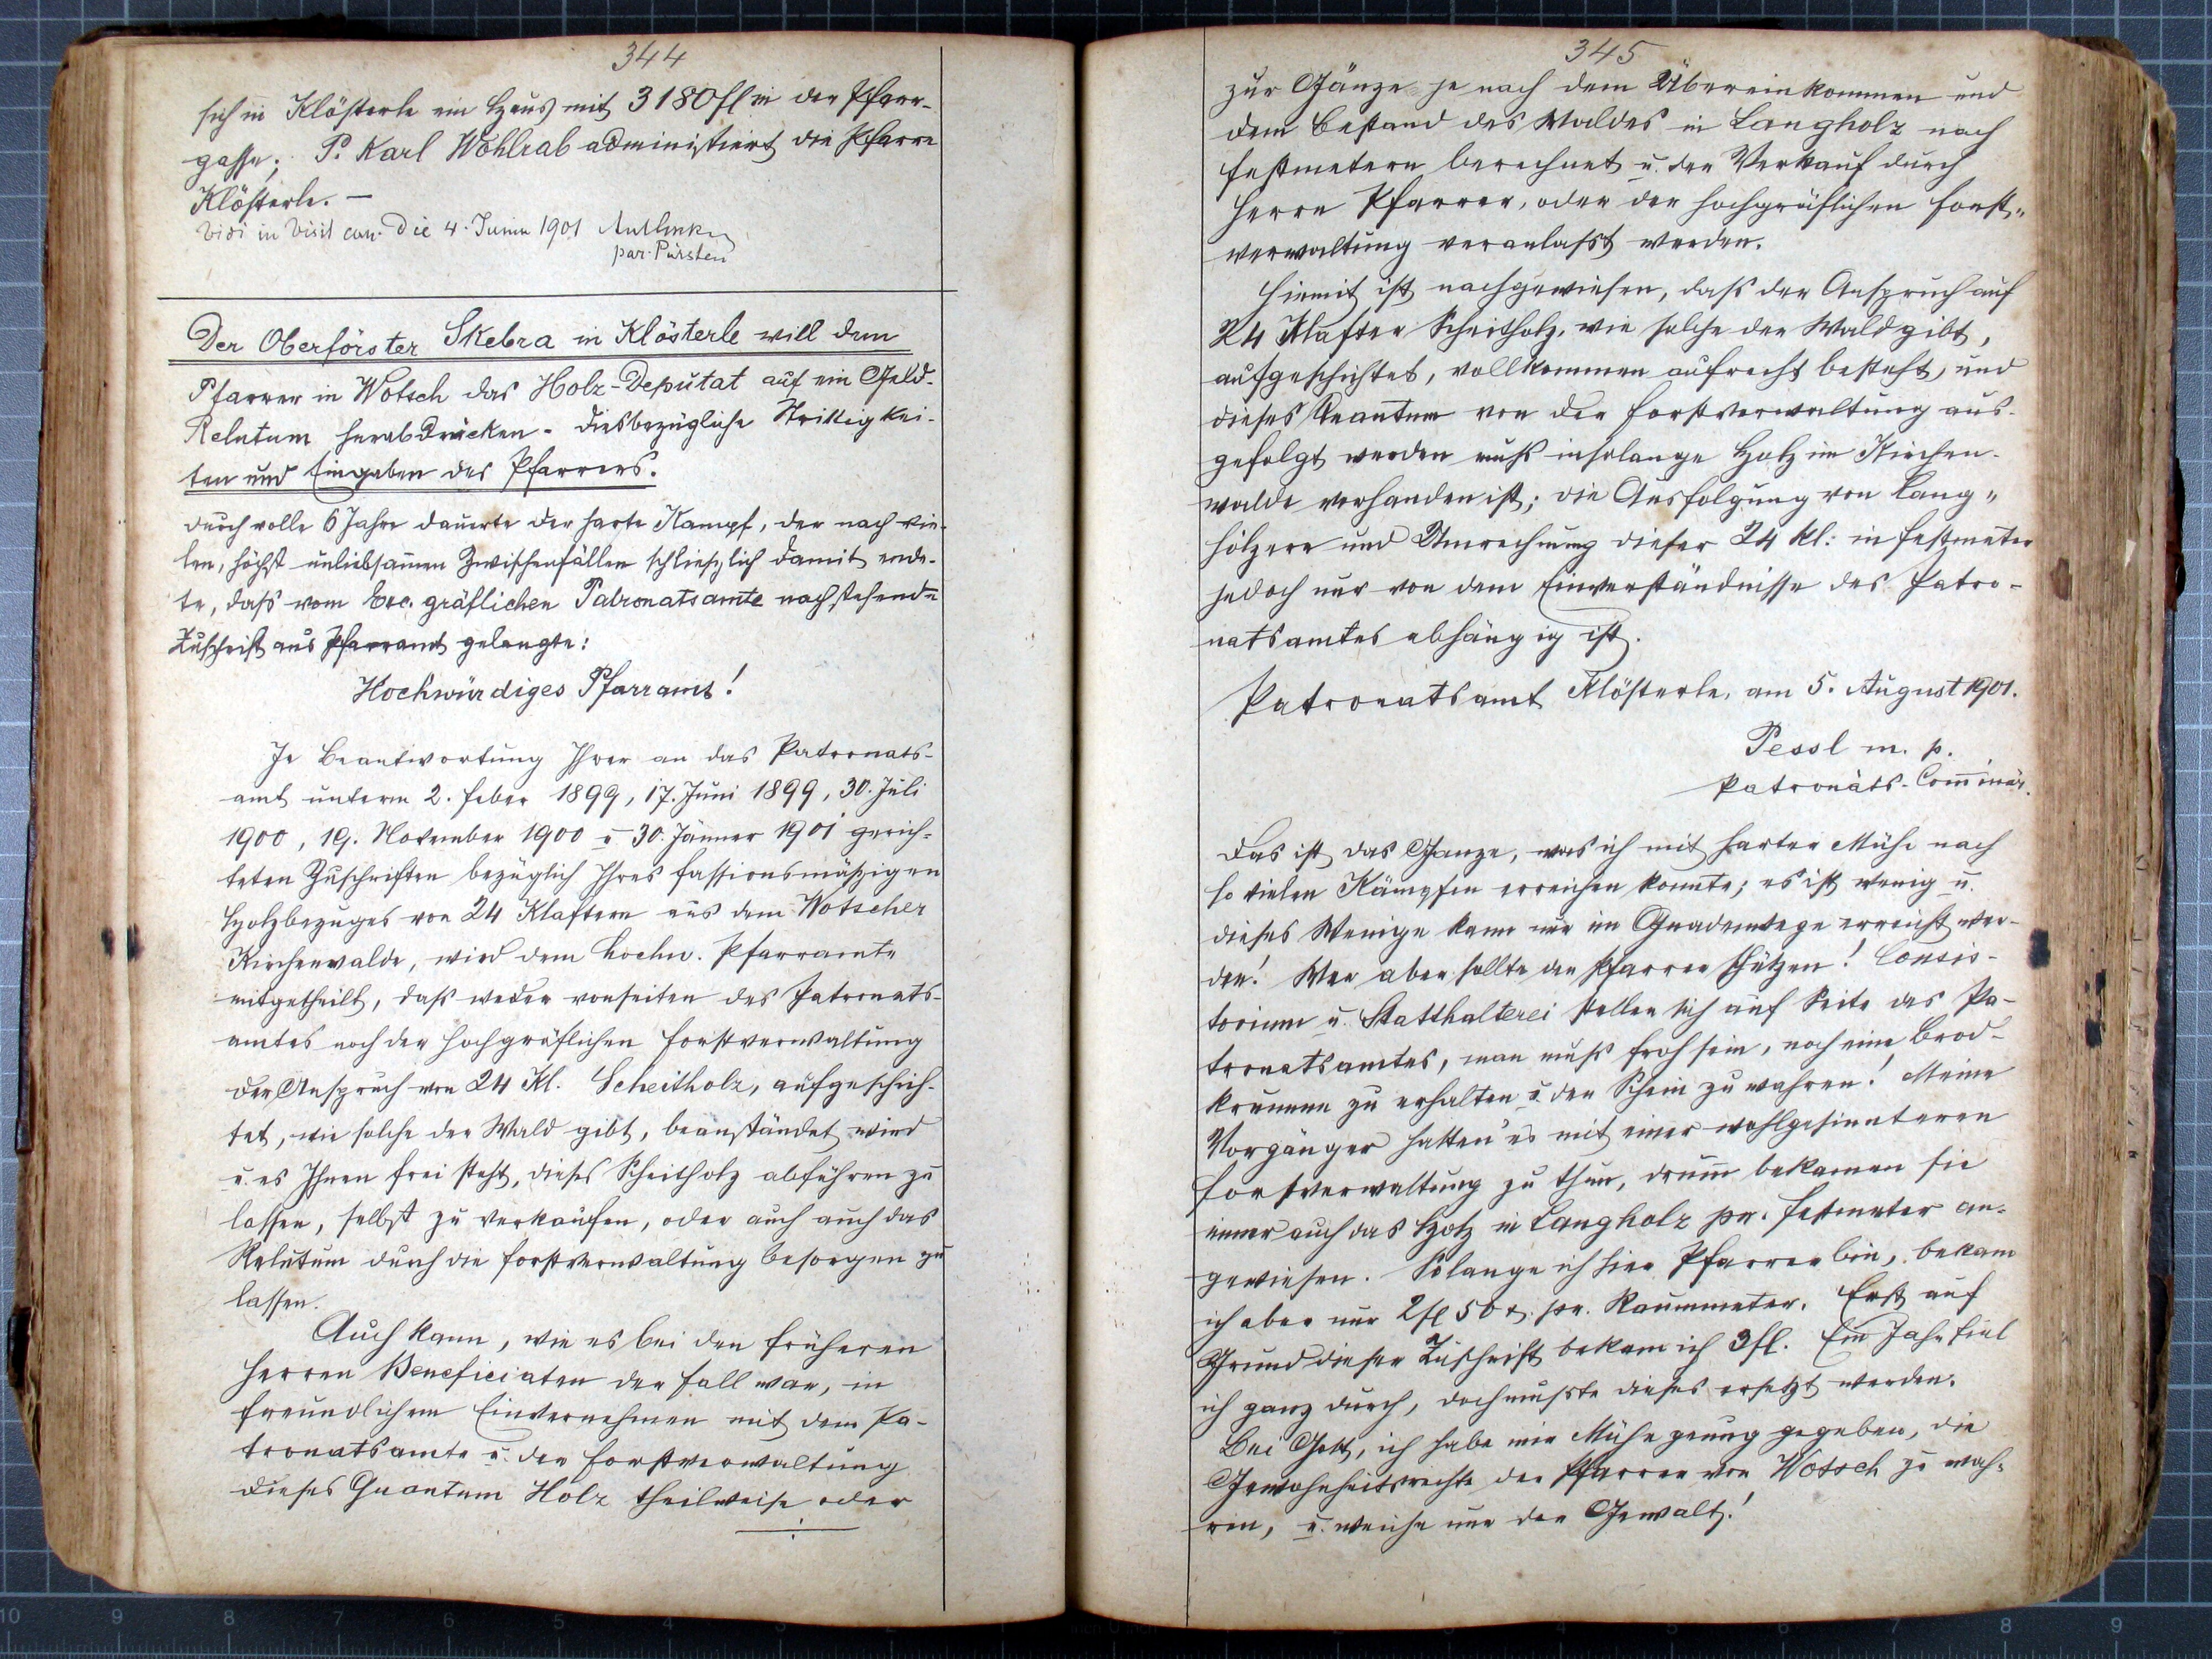 344
sich in Klösterle ein Haus mit 3180 fl in der Pfarr-
gasse; P. Karl Wohlrab administriert die Pfarre
Klösterle. —
Vidi in Visit can. die 4. Junii 1901
par. Pürsten
Der Oberförster Skebra in Klösterle will dem
Pfarrer in Wotsch das Holz-Deputat auf ein Geld-
Relutum herabdrücken - diesbezügliche Streitigkei-
ten und Eingaben des Pfarrers.
Durch volle 6 Jahre dauerte der harte Kampf, der nach vie-
len, höchst unliebsamen Zwischenfällen schließlich damit ende-
te, dass vom Exc. gräflichen Patronatsamte nachstehende
Zuschrift ans Pfarramt gelangte:
Hochwürdiges Pfarramt!
In Beantwortung Ihrer an das Patronats-
amt unterm 2. Feber 1899, 17. Juni 1899, 30. Juli
1900, 19. November 1900 u. 30. Jänner 1901 gerich-
teten Zuschriften bezüglich Ihres fassionsmäßigen
Holzbezuges von 24 Klaftern aus dem Wotscher
Kirchenwalde, wird dem hochw. Pfarramte
mitgetheilt, dass weder vonseiten des Patronats-
amtes noch der hochgräflichen Forstverwaltung
der Anspruch von 24 Kl. Scheitholz, aufgeschich-
tet, wie solche der Wald gibt, beanständet wird
u. es Ihnen frei steht, dieses Scheitholz abführen zu
lassen, selbst zu verkaufen, oder auch auch das
Relutum durch die Forstverwaltung besorgen zu
lassen.
Auch kann, wie es bei den früheren
Herren Beneficiaten der Fall war, in
freundlichem Einvernehmen mit dem Pa-
tronatsamte u. der Forstverwaltung
dieses Quantum Holz theilweise oder
345
zur Gänze je nach dem Übereinkommen und
dem Bestand des Waldes in Langholz nach
Festmetern berechnet u. der Verkauf durch
Herrn Pfarrer, oder der hochgräflichen Forst-
verwaltung veranlasst werden.
Hiemit ist nachgewiesen, dass der Anspruch auf
24 Klafter Scheitholz, wie solche der Wald gibt,
aufgeschichtet, vollkommen aufrecht besteht, und
dieses Quantum von der Forstverwaltung aus-
gefolgt werden muss insolange Holz im Kirchen-
walde vorhanden ist; die Ausfolgung von Lang-
hölzern und Umrechnung dieser 24 Kl: in Festmeter
jedoch nur von dem Einverständnisse des Patro-
natsamtes abhängig ist.
Patronatsamt Klösterle, am 5. August 1901.
Pessl m. p.
Patronats-Commissär.
Das ist das Ganze, was ich mit harter Mühe nach
so vielen Kämpfen erreichen konnte; es ist wenig u.
dieses Wenige kann nur im Gnadenwege erreicht wer-
den! Wer aber sollte den Pfarrer schützen! Consis-
torium u. Statthalterei stellen sich auf Seite des Pa-
tronatsamtes, man muss froh sein, noch eine Brod-
krumme zu erhalten u. den Schein zu wahren! Meine
Vorgänger hatten es mit einer wohlgesinnteren
Forstverwaltung zu thun, drum bekamen sie
immer auch das Holz in Langholz pr. Festmeter an-
gewiesen. Solange ich hier Pfarrer bin, bekam
ich aber nur 2 fl 50 x. pr. Raummeter. Erst auf
Grund dieser Zuschrift bekam ich 3 fl. Ein Jahr fiel
ich ganz durch, doch musste dieses ersetzt werden.
Bei Gott, ich habe mir Mühe genug gegeben, die
Gewohnheitsrechte der Pfarrer von Wotsch zu wah-
ren, u. weiche nur der Gewalt!